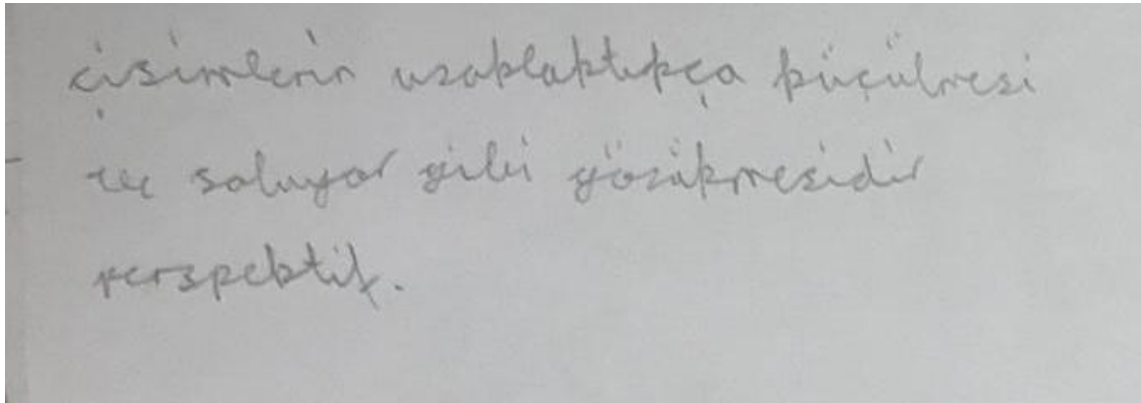 çisimlerin uzaklaktıkça küçülmesi
ve soluyor gibi gözükmesidir
perspektif.